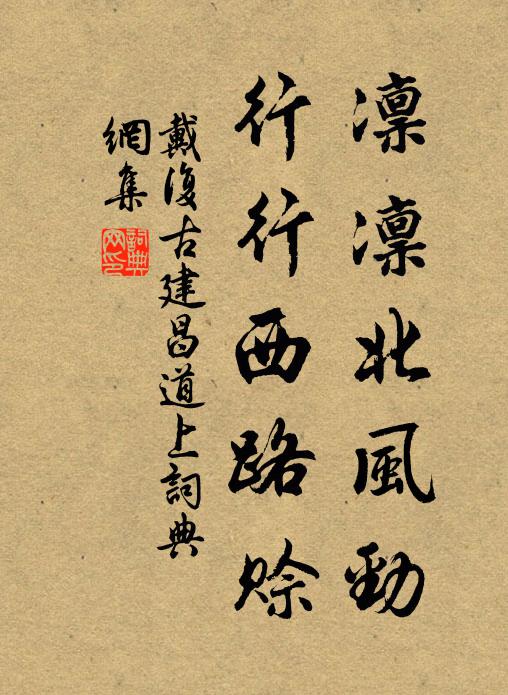 凜凜北風勁
行行西路賒
戴復古建昌道上詞典
網集
詞典
网印